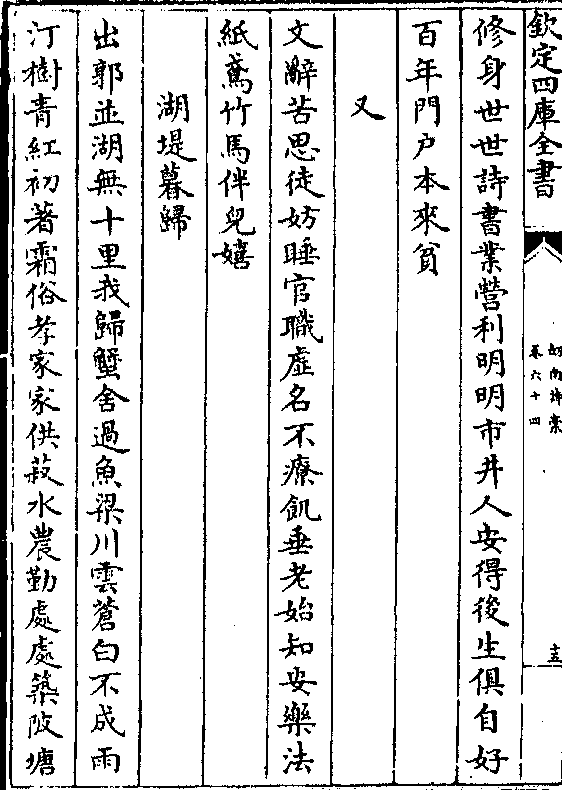 欽定四庫全書
劍南詩藁
卷六十四
十五
修身世世詩書業營利明明市井人安得後生俱自好
百年門户本來貧
又
文辭苦思徒妨睡官職虛名不療飢垂老始知安樂法
紙鳶竹馬伴兒嬉
湖堤暮歸
出郭並湖無十里我歸蟹舍過魚梁川雲蒼白不成雨
汀樹青紅初著霜俗孝家家供菽水農勤處處築陂塘